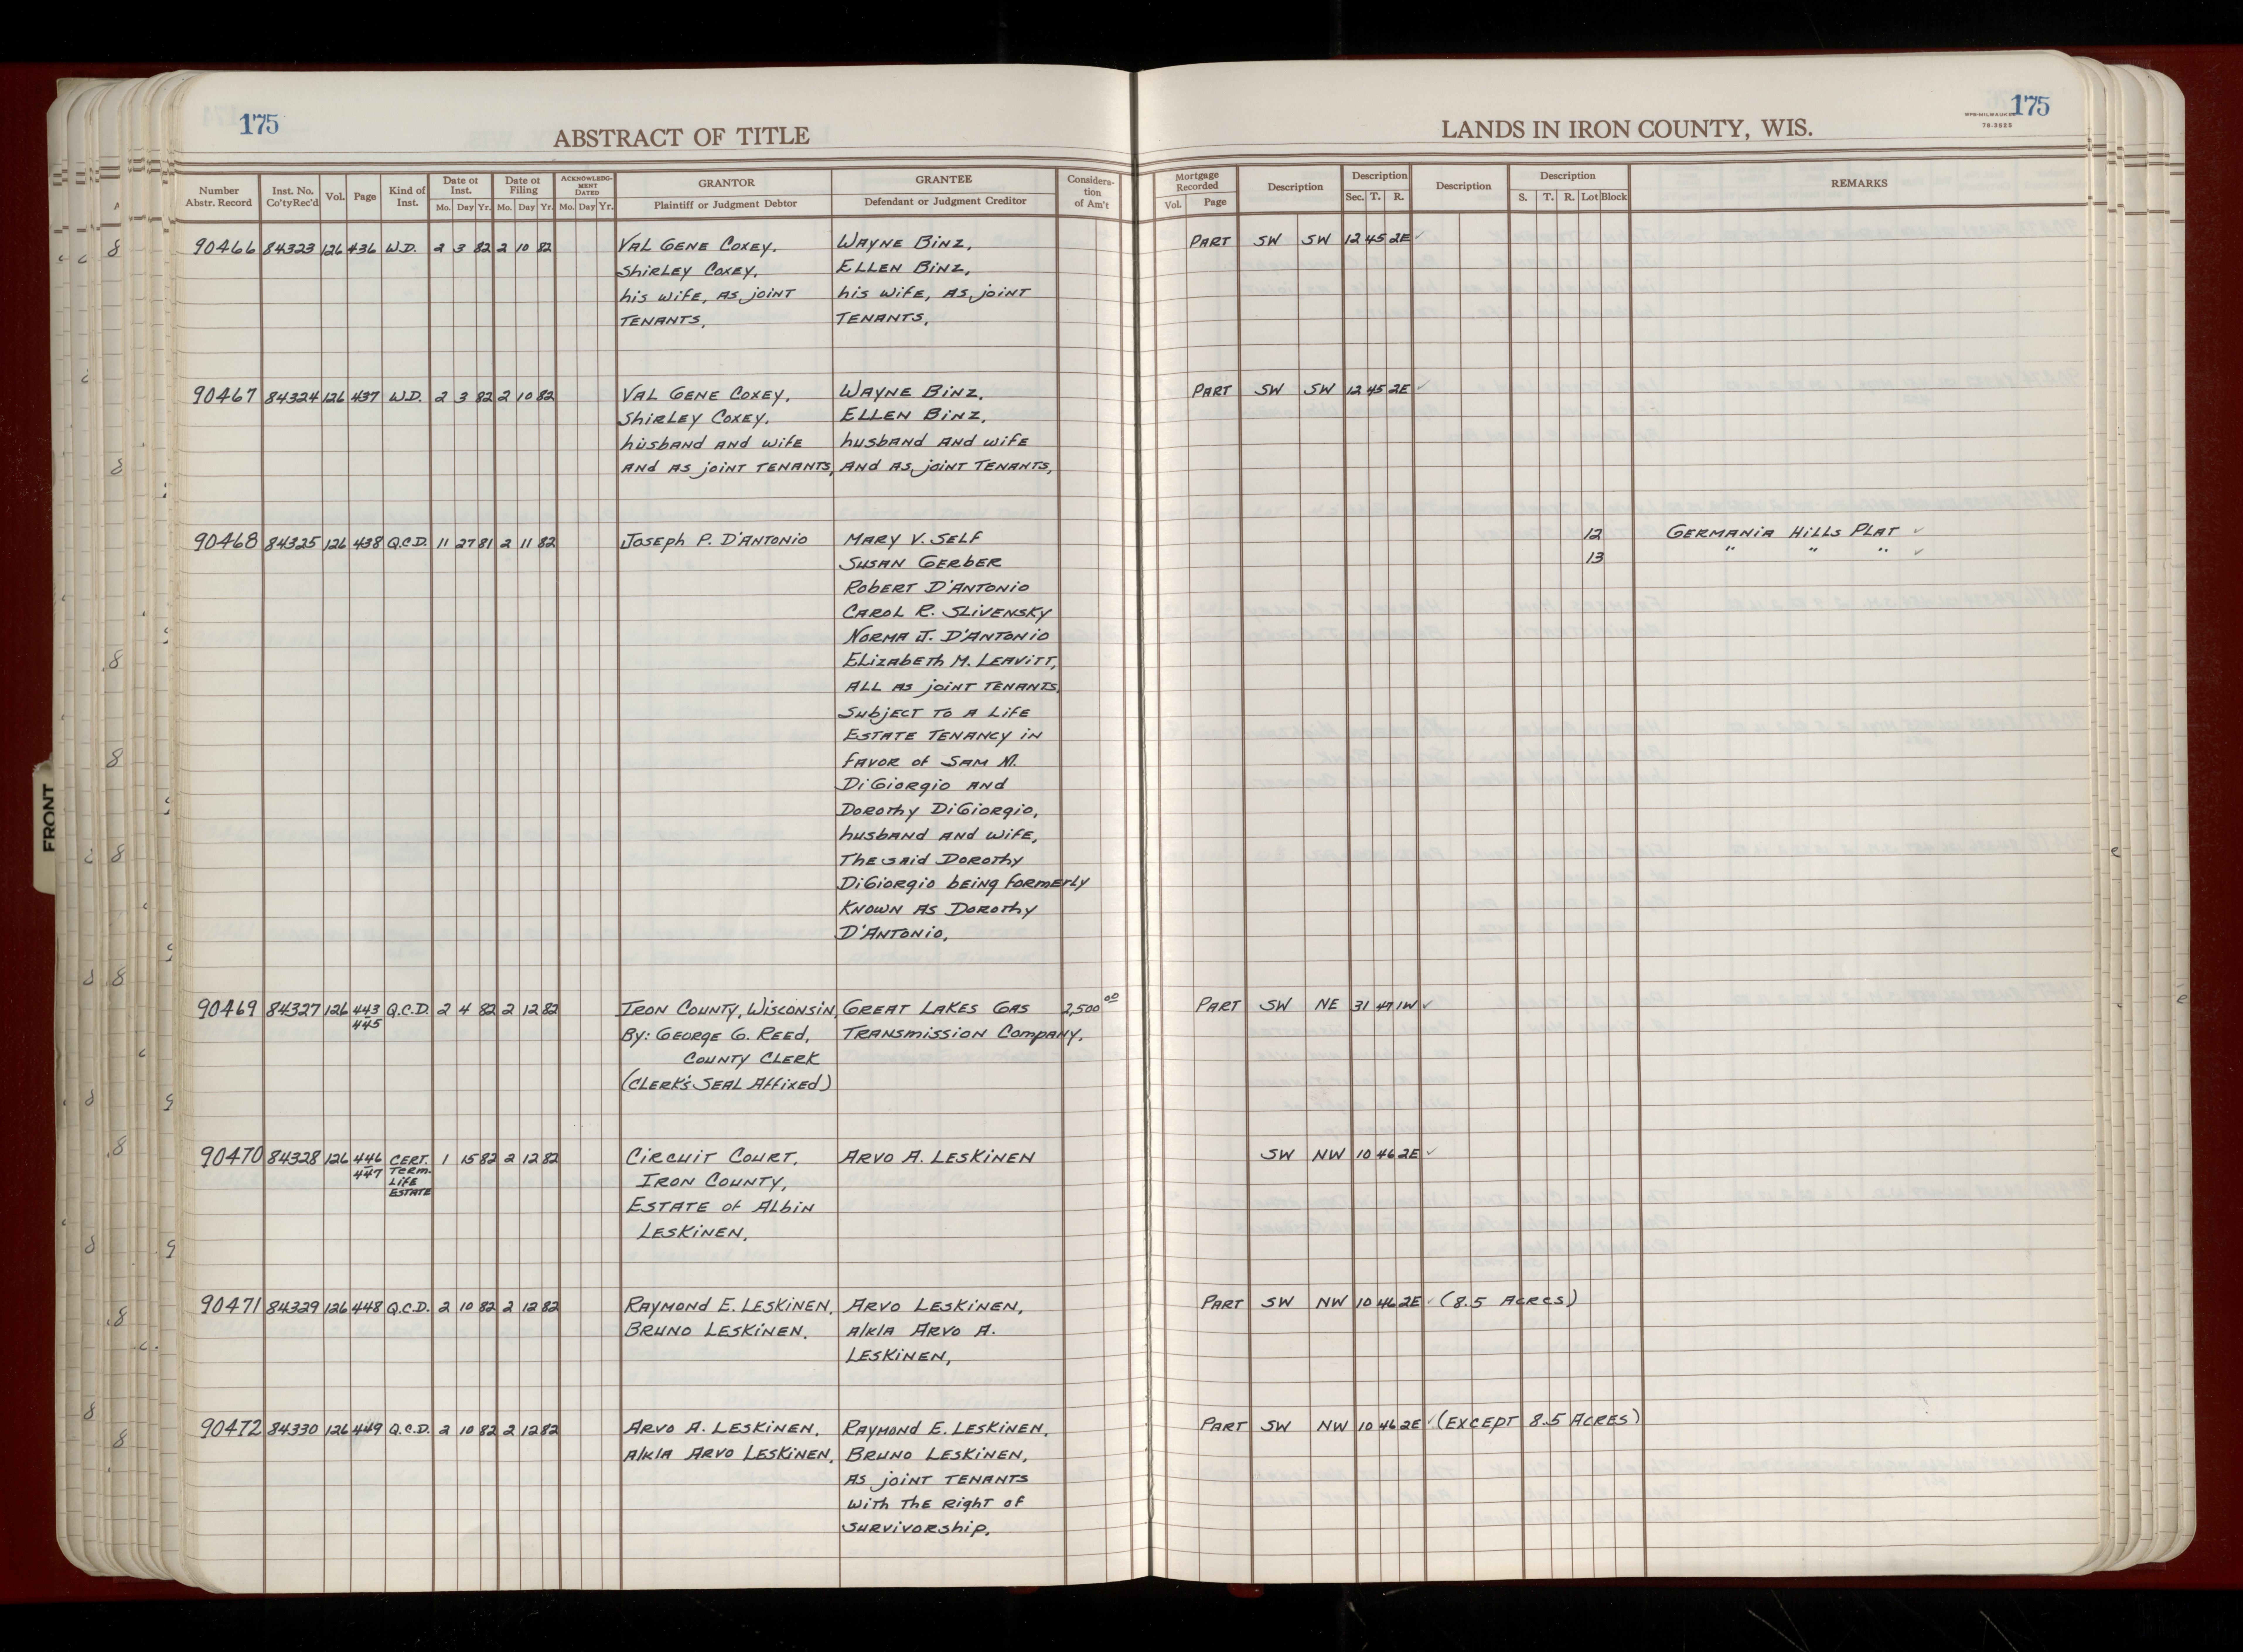 175
ABSTRACT OF TITLE
LANDS IN IRON COUNTY, WIS.
175
78-3525
Number Abstr. Record | Inst. No. Co'ty Rec'd | Vol. | Page | Kind of Inst. | Date of Inst. Mo. Day Yr. | Date of Filing Mo. Day Yr. | ACKNOWLEDGMENT DATED Mo. Day Yr. | GRANTOR Plaintiff or Judgment Debtor | GRANTEE Defendant or Judgment Creditor | Consideration of Am't | Mortgage Recorded Vol. Page | Description | Description Sec. T. R. | Description | Description S. T. R. Lot Block | REMARKS
90466 84323 126 436 W.D. 2 3 82 2 10 82 VAL GENE COXEY, WAYNE BINZ, PART SW SW 12 45 2E ✓
SHIRLEY COXEY, ELLEN BINZ,
his wife, AS joint his wife, AS joint
TENANTS, TENANTS,
90467 84324 126 437 W.D. 2 3 82 2 10 82 VAL GENE COXEY, WAYNE BINZ, PART SW SW 12 45 2E ✓
SHIRLEY COXEY, ELLEN BINZ,
husband and wife husband and wife
AND AS joint TENANTS, AND AS joint TENANTS,
90468 84325 126 438 Q.C.D. 11 27 81 2 11 82 Joseph P. D'ANTONIO MARY V. SELF 12 GERMANIA HILLS PLAT ✓
SUSAN GERBER 13 " " " ✓
ROBERT D'ANTONIO
CAROL R. SLIVENSKY
NORMA J. D'ANTONIO
ELIZABETH M. LEAVITT,
ALL AS joint TENANTS,
SUBJECT TO A LIFE
ESTATE TENANCY IN
FAVOR of SAM M.
DiGiorgio AND
DOROTHY DiGiorgio,
husband and wife,
The said DOROTHY
DiGiorgio being formerly
KNOWN AS DOROTHY
D'ANTONIO,
90469 84327 126 443 Q.C.D. 2 4 82 2 12 82 IRON COUNTY, WISCONSIN, GREAT LAKES GAS 2,500 00 PART SW NE 31 47 1W ✓
445 By: GEORGE G. REED, TRANSMISSION COMPANY.
COUNTY CLERK
(CLERK'S SEAL AFFIXED)
90470 84328 126 446 CERT. 1 15 82 2 12 82 CIRCUIT COURT, ARVO A. LESKINEN SW NW 10 46 2E ✓
447 TERM. IRON COUNTY,
LIFE
ESTATE ESTATE of ALBIN
LESKINEN,
90471 84329 126 448 Q.C.D. 2 10 82 2 12 82 RAYMOND E. LESKINEN, ARVO LESKINEN, PART SW NW 10 46 2E ✓ (8.5 ACRES)
BRUNO LESKINEN, A/K/A ARVO A.
LESKINEN,
90472 84330 126 449 Q.C.D. 2 10 82 2 12 82 ARVO A. LESKINEN, RAYMOND E. LESKINEN, PART SW NW 10 46 2E ✓ (EXCEPT 8.5 ACRES)
A/K/A ARVO LESKINEN, BRUNO LESKINEN,
AS joint TENANTS
with the right of
survivorship.
FRONT